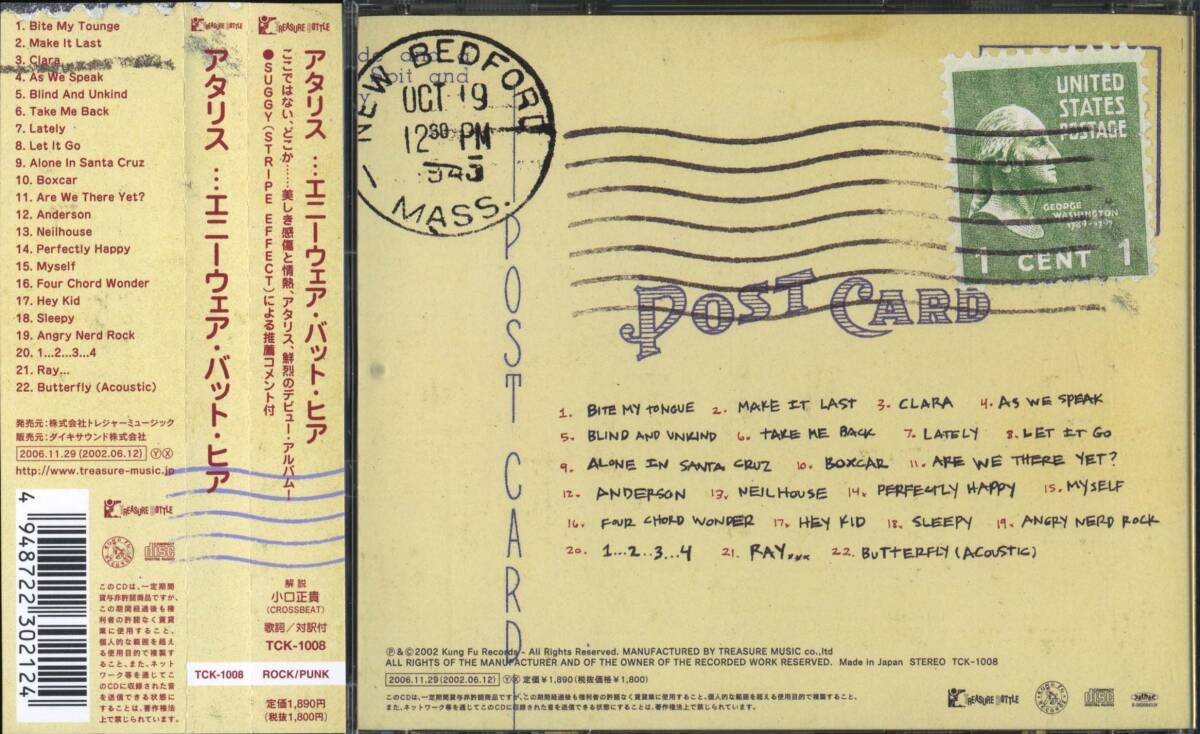 1. Bite My Tounge
2. Make It Last
3. Clara
4. As We Speak
5. Blind And Unkind
6. Take Me Back
7. Lately
8. Let It Go
9. Alone In Santa Cruz
10. Boxcar
11. Are We There Yet?
12. Anderson
13. Neilhouse
14. Perfectly Happy
15. Myself
16. Four Chord Wonder
17. Hey Kid
18. Sleepy
19. Angry Nerd Rock
20. 1...2...3...4
21. Ray...
22. Butterfly (Acoustic)
発売元:株式会社トレジャーミュージック
販売元:ダイキサウンド株式会社
2006.11.29(2002.06.12) Ⓨ Ⓧ
http://www.treasure-music.jp
4948722302124
TREASURE BOTTLE
このCDは、一定期間
貸与非許諾商品ですが、
この期間経過後も権
利者の許諾なく賃貸
業に使用すること、
個人的な範囲を超え
る使用目的で複製す
ること、また、ネット
ワーク等を通じてこ
のCDに収録された音
を送信できる状態に
することは、著作権法
上で禁じられています。
TREASURE BOTTLE
アタリス …エニーウェア・バット・ヒア
TCK-1008
TREASURE BOTTLE
アタリス …エニーウェア・バット・ヒア
ここではない、どこか……美しき感傷と情熱、アタリス、鮮烈のデビュー・アルバム!
●SUGGY(STRIPE EFFECT)による推薦コメント付
解説
小口正貴
(CROSSBEAT)
歌詞/対訳付
TCK-1008
ROCK/PUNK
定価1,890円
(税抜1,800円)
NEW BEDFORD
OCT 19
12 30 PM
MASS.
UNITED
STATES
POSTAGE
GEORGE
WASHINGTON
1 CENT 1
POST CARD
POST CARD
1. BITE MY TONGUE 2. MAKE IT LAST 3. CLARA 4. AS WE SPEAK
5. BLIND AND UNKIND 6. TAKE ME BACK 7. LATELY 8. LET IT GO
9. ALONE IN SANTA CRUZ 10. BOXCAR 11. ARE WE THERE YET?
12. ANDERSON 13. NEILHOUSE 14. PERFECTLY HAPPY 15. MYSELF
16. FOUR CHORD WONDER 17. HEY KID 18. SLEEPY 19. ANGRY NERD ROCK
20. 1...2...3...4 21. RAY... 22. BUTTERFLY (ACOUSTIC)
Ⓟ&©2002 Kung Fu Records - All Rights Reserved. MANUFACTURED BY TREASURE MUSIC co.,ltd
ALL RIGHTS OF THE MANUFACTURER AND OF THE OWNER OF THE RECORDED WORK RESERVED. Made in Japan STEREO TCK-1008
2006.11.29(2002.06.12) ⓎⓍ 定価¥1,890(税抜価格¥1,800)
このCDは、一定期間貸与非許諾商品ですが、この期間経過後も権利者の許諾なく賃貸業に使用すること、個人的な範囲を超える使用目的で複製すること、
また、ネットワーク等を通じてこのCDに収録された音を送信できる状態にすることは、著作権法上で禁じられています。
TREASURE BOTTLE